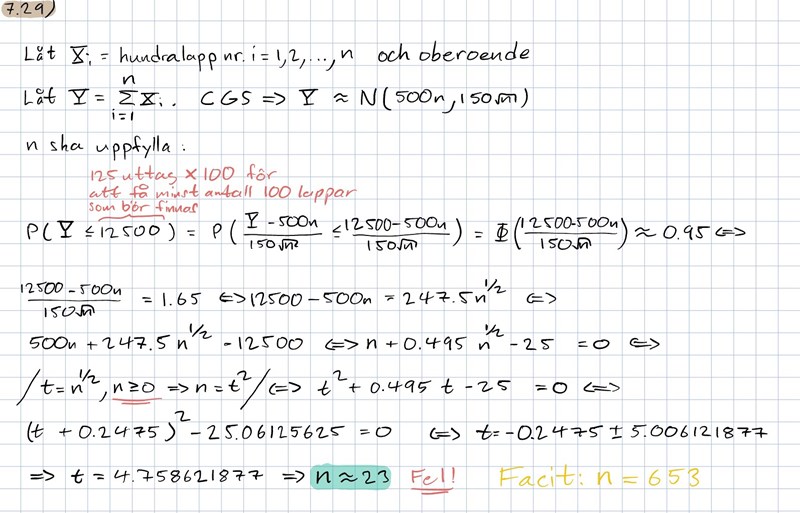 7.29)
Låt X_i = hundralapp nr. i = 1,2,...,n och oberoende
Låt Y = Σ_{i=1}^{n} X_i. CGS => Y ≈ N(500n, 150√n)
n ska uppfylla:
125 uttag x 100 för
att få minst antall 100 lappar
som bör finnas
P(Y ≤ 12500) = P( (Y - 500n)/(150√n) ≤ (12500-500n)/(150√n) ) = Φ( (12500-500n)/(150√n) ) ≈ 0.95 <=>
(12500-500n)/(150√n) = 1.65 <=> 12500-500n = 247.5n^{1/2} <=>
500n + 247.5n^{1/2} - 12500 <=> n + 0.495 n^{1/2} - 25 = 0 <=>
/t = n^{1/2}, n ≥ 0 => n = t^2/ <=> t^2 + 0.495 t - 25 = 0 <=>
(t + 0.2475)^2 - 25.06125625 = 0 <=> t = -0.2475 ± 5.006121877
=> t = 4.758621877 => n ≈ 23 Fel! Facit: n = 653